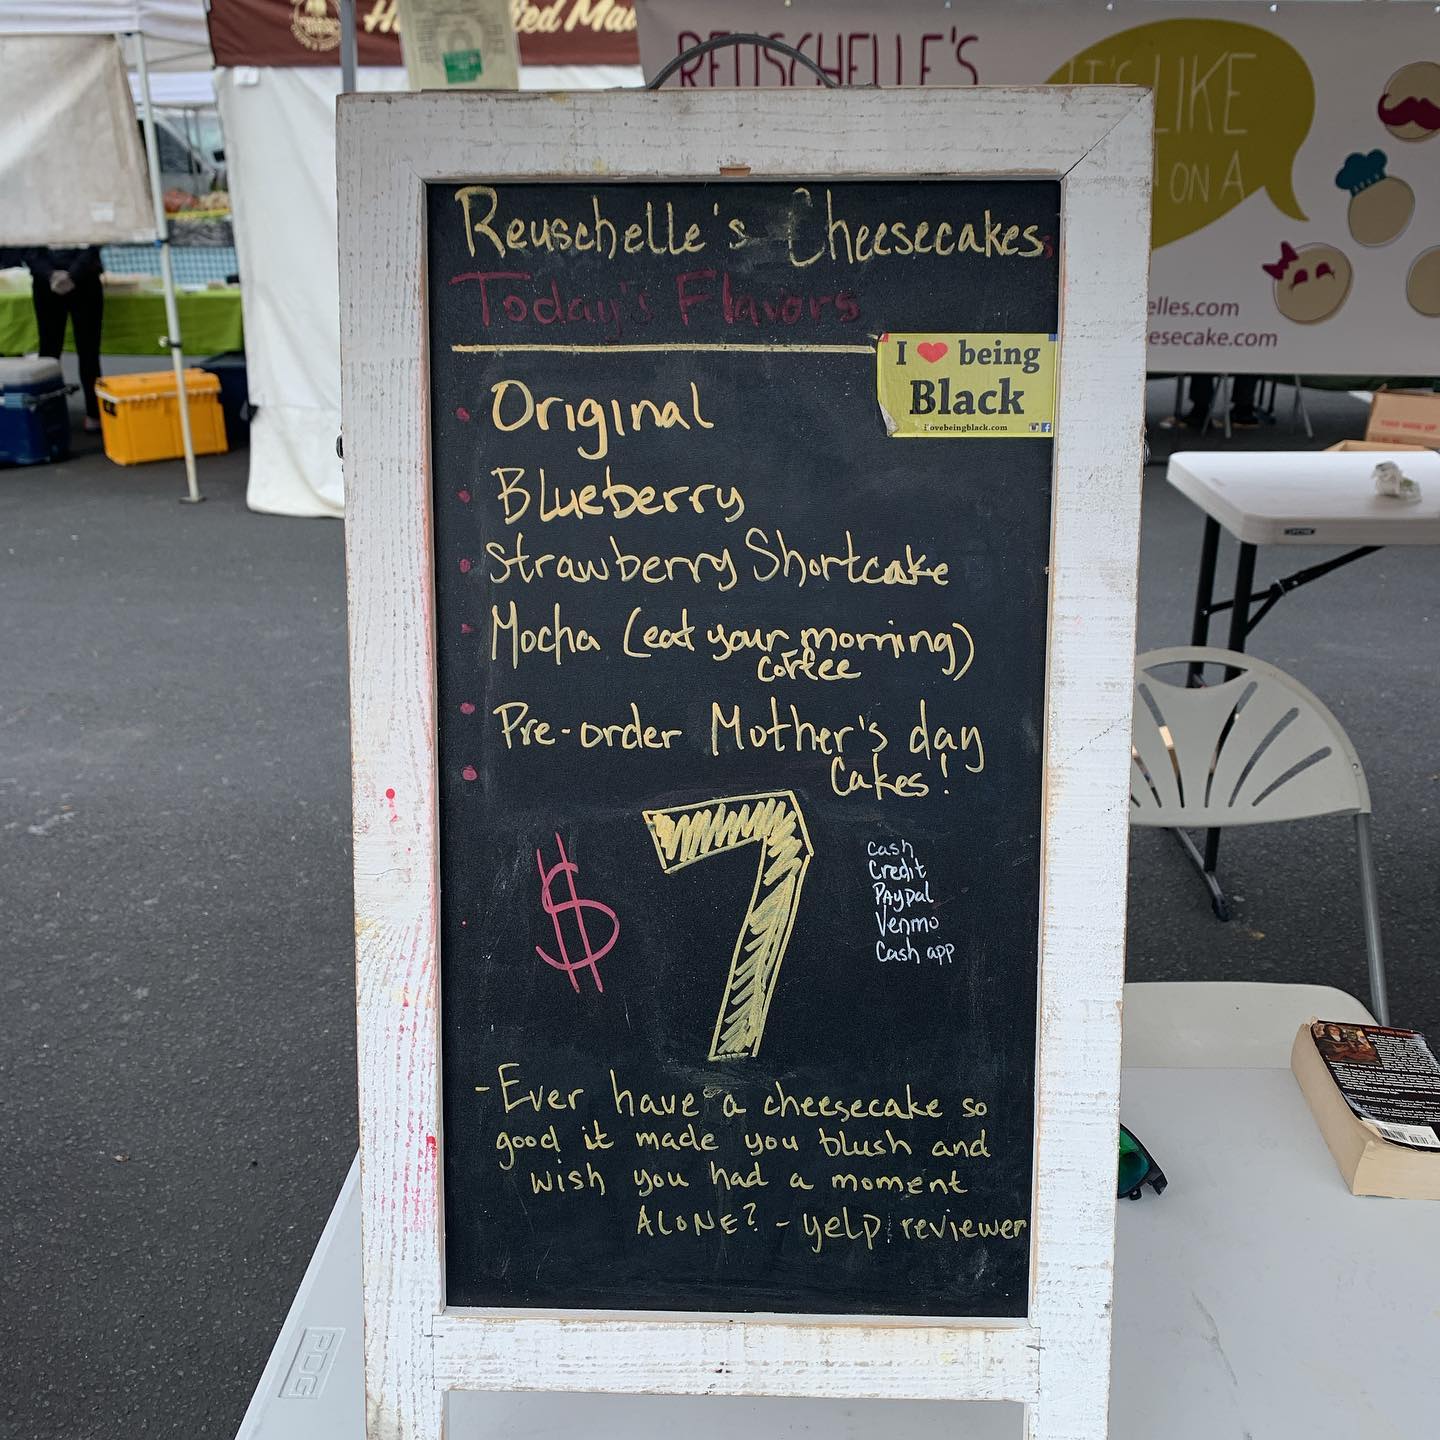 REUSCHELLE'S
IT'S LIKE
ON A
elles.com
esecake.com
Reuschelle's Cheesecakes
Today's Flavors
I ❤ being
Black
ilovebeingblack.com
Original
Blueberry
Strawberry Shortcake
Mocha (eat your morning)
coffee
Pre-order Mother's day
Cakes!
$7
cash
Credit
PAypal
Venmo
Cash app
-Ever have a cheesecake so
good it made you blush and
wish you had a moment
ALONE? - yelp reviewer
PDG